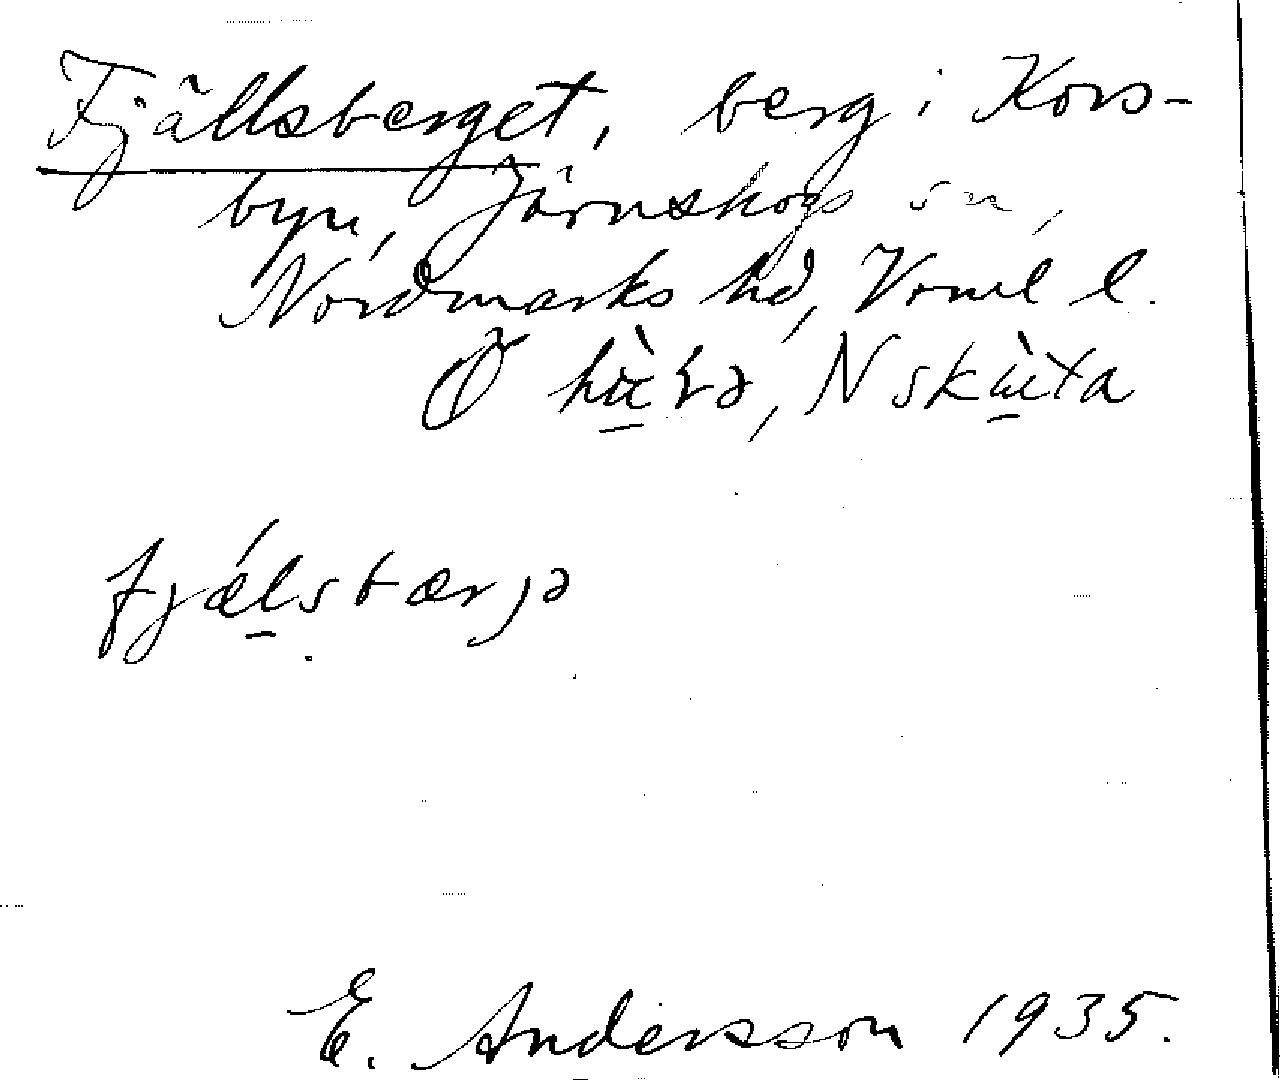 Fjällsberget, berg i Kors-
byn, Järnskogs sn,
Nordmarks hd, Vrml l.
Ö N
fjǽl̠sbærjə
E. Andersson 1935.